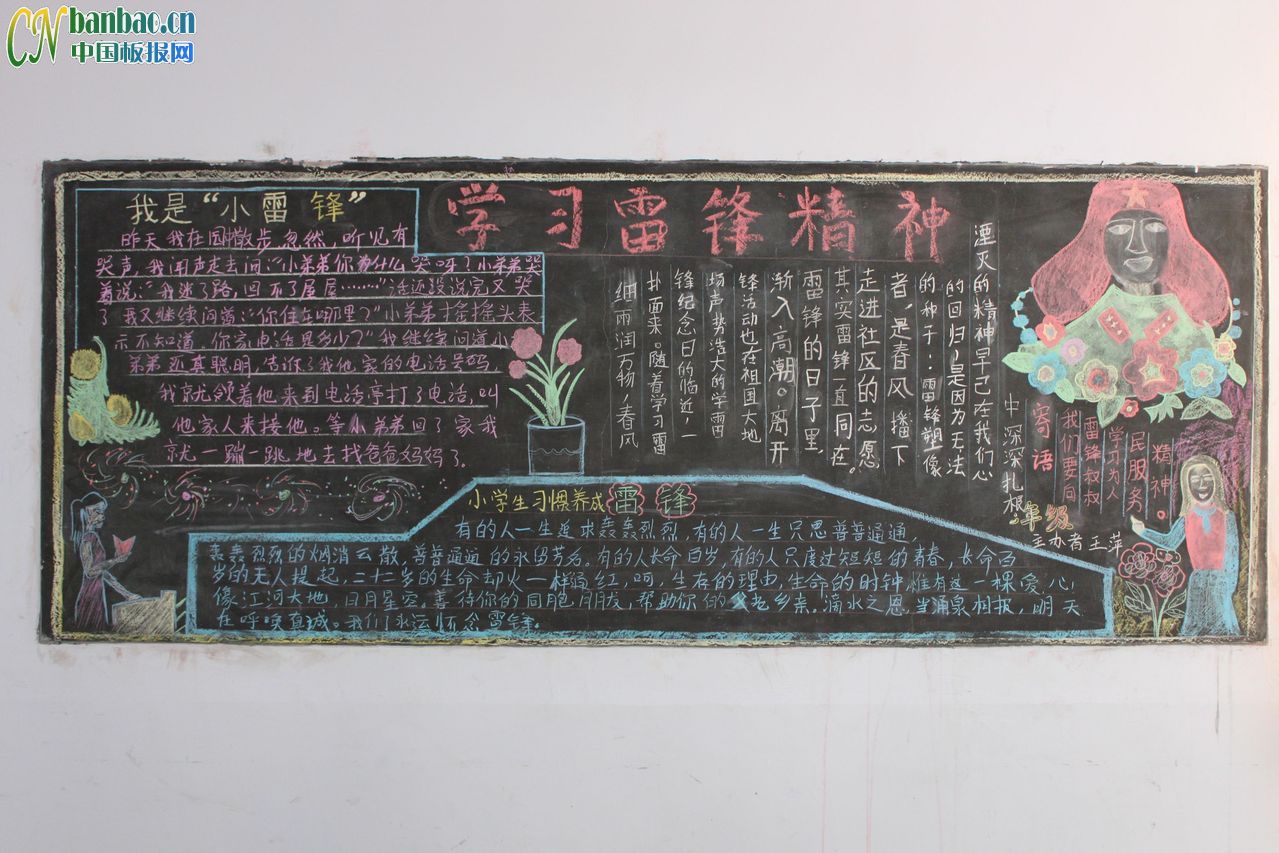 CN banbao.cn
中国板报网
学习雷锋精神
我是“小雷锋”
昨天我在园中散步,忽然,听见有
哭声,我闻声走去问:“小弟弟你为什么哭呀?小弟弟哭
着说:“我迷了路,回不了屋屋……”话还没说完又哭
了我又继续问着:“你住在哪里?”小弟弟摇摇头表
示不知道,你家电话是多少?”我继续问道小
弟弟还真聪明,告诉了我他家的电话号码
我就领着他来到电话亭打了电话,叫
他家人来接他。等小弟弟回了家我
就一蹦一跳地去找爸爸妈妈了。
细雨润万物,春风
扑面来。随着学习雷
锋纪念日的临近,一
场声势浩大的学雷
锋活动也在祖国大地
渐入高潮。离开
雷锋的日子里,
其实雷锋一直同在。
走进社区的志愿
者,是春风播下
的种子:雷锋塑像
的回归,是因为无法
湮灭的精神早已在我们心
中深深扎根。
寄语
我们要向
雷锋叔叔
学习为人
民服务
精神。
年级
主办者王萍
小学生习惯养成雷锋
有的人一生追求轰轰烈烈,有的人一生只思普普通通,
轰轰烈烈的烟消云散,普普通通的永留芳名。有的人长命百岁,有的人只度过短短的青春,长命百
岁的无人提起,二十二岁的生命却火一样鲜红,呵,生存的理由,生命的时钟惟有这一棵爱心
像江河大地,日月星空。善待你的同胞朋友,帮助你的父老乡亲,滴水之恩当涌泉相报,明天
在呼唤真诚。我们永远怀念雷锋。